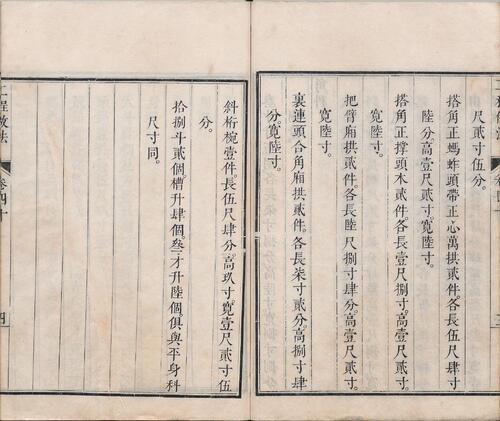 尺貳寸伍分。
搭角正螞蚱頭帶正心萬拱貳件。各長伍尺肆寸
陸分。高壹尺貳寸。寬陸寸。
搭角正撐頭木貳件。各長壹尺捌寸。高壹尺貳寸。
寬陸寸。
把臂廂拱貳件。各長陸尺捌寸肆分。高壹尺貳寸。
寬陸寸。
裏連頭合角廂拱貳件。各長柒寸貳分。高捌寸肆
分。寬陸寸。
斜桁椀壹件。長伍尺肆分。高玖寸。寬壹尺貳寸伍
分。
拾捌斗貳個。槽升肆個。叁才升陸個。俱與平身科
尺寸同。
工程做法
卷四十
四